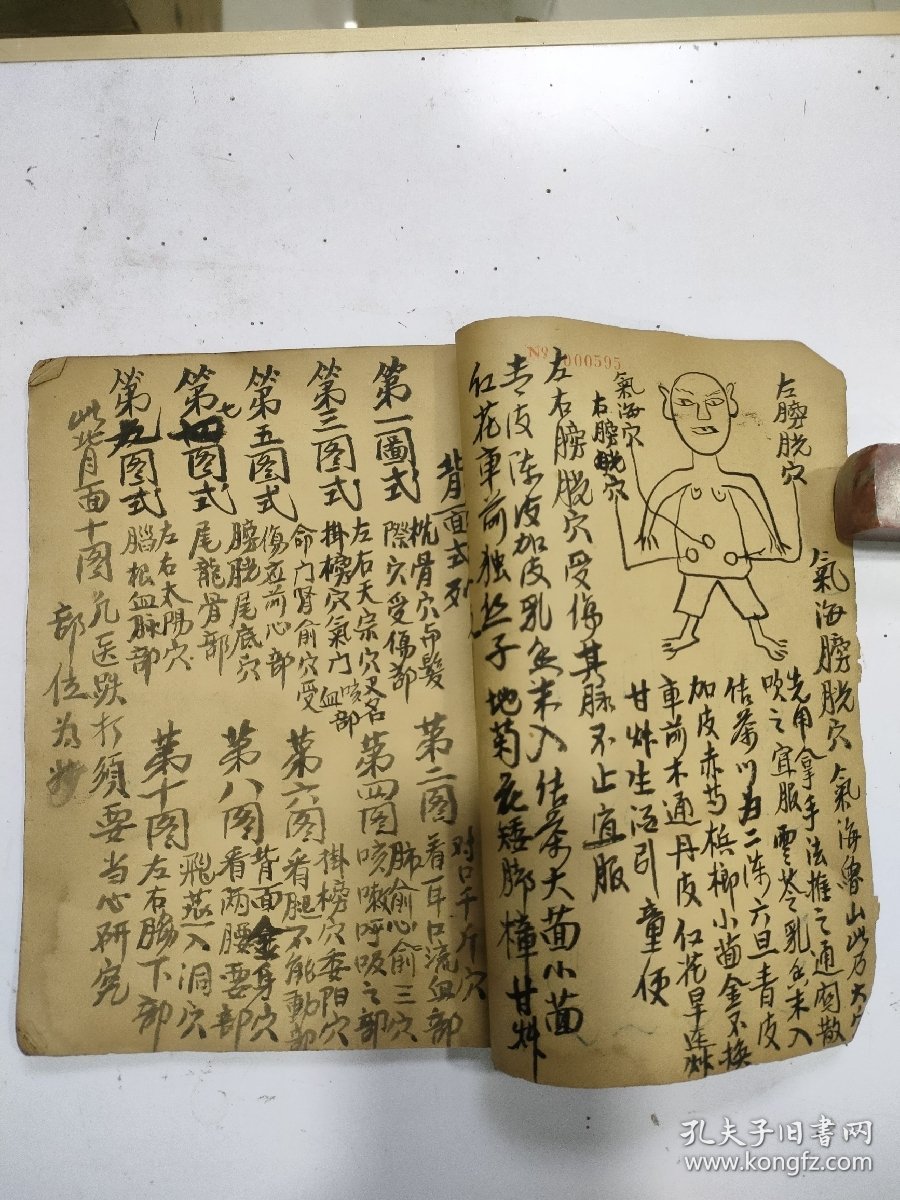 № 000595
左膀脱穴
氣海穴
右膀脱穴
氣海膀脱穴 氣海魯山此乃大穴
先用拿手法推之通関散
吹之宜服零苓乳香末入
估茶川力二陈六旦青皮
加皮赤芍梹榔小茴金不换
車前木通丹皮红花旱莲艸
甘艸生酒引 童便
左右膀脱穴受傷其脉不止宜服
青皮陈皮加皮乳香末入估茶大茴小茴
红花車前独丝子地菊花矮脚樟甘艸
背面式列
第一圖式 枕骨穴与髪際穴受傷部
第二图 对口千斤穴看耳口流血部
第三图式 左右天宗穴又名掛榜穴氣门咳血部
第四图 肺俞心俞三穴咳嗽呼吸之部
第五图式 命门腎俞穴受傷在前心部
第六图 掛榜穴委阳穴看腿不能動部
第七图式 膀胱尾底穴尾龍骨部
第八图 背面金身穴看两腰要部
第九图式 左右太陽穴腦根血脉部
第十图 飛燕入洞穴左右脇下部
此背面十图凡医跌打须要当心研究
部位为妙
孔夫子旧书网
www.kongfz.com